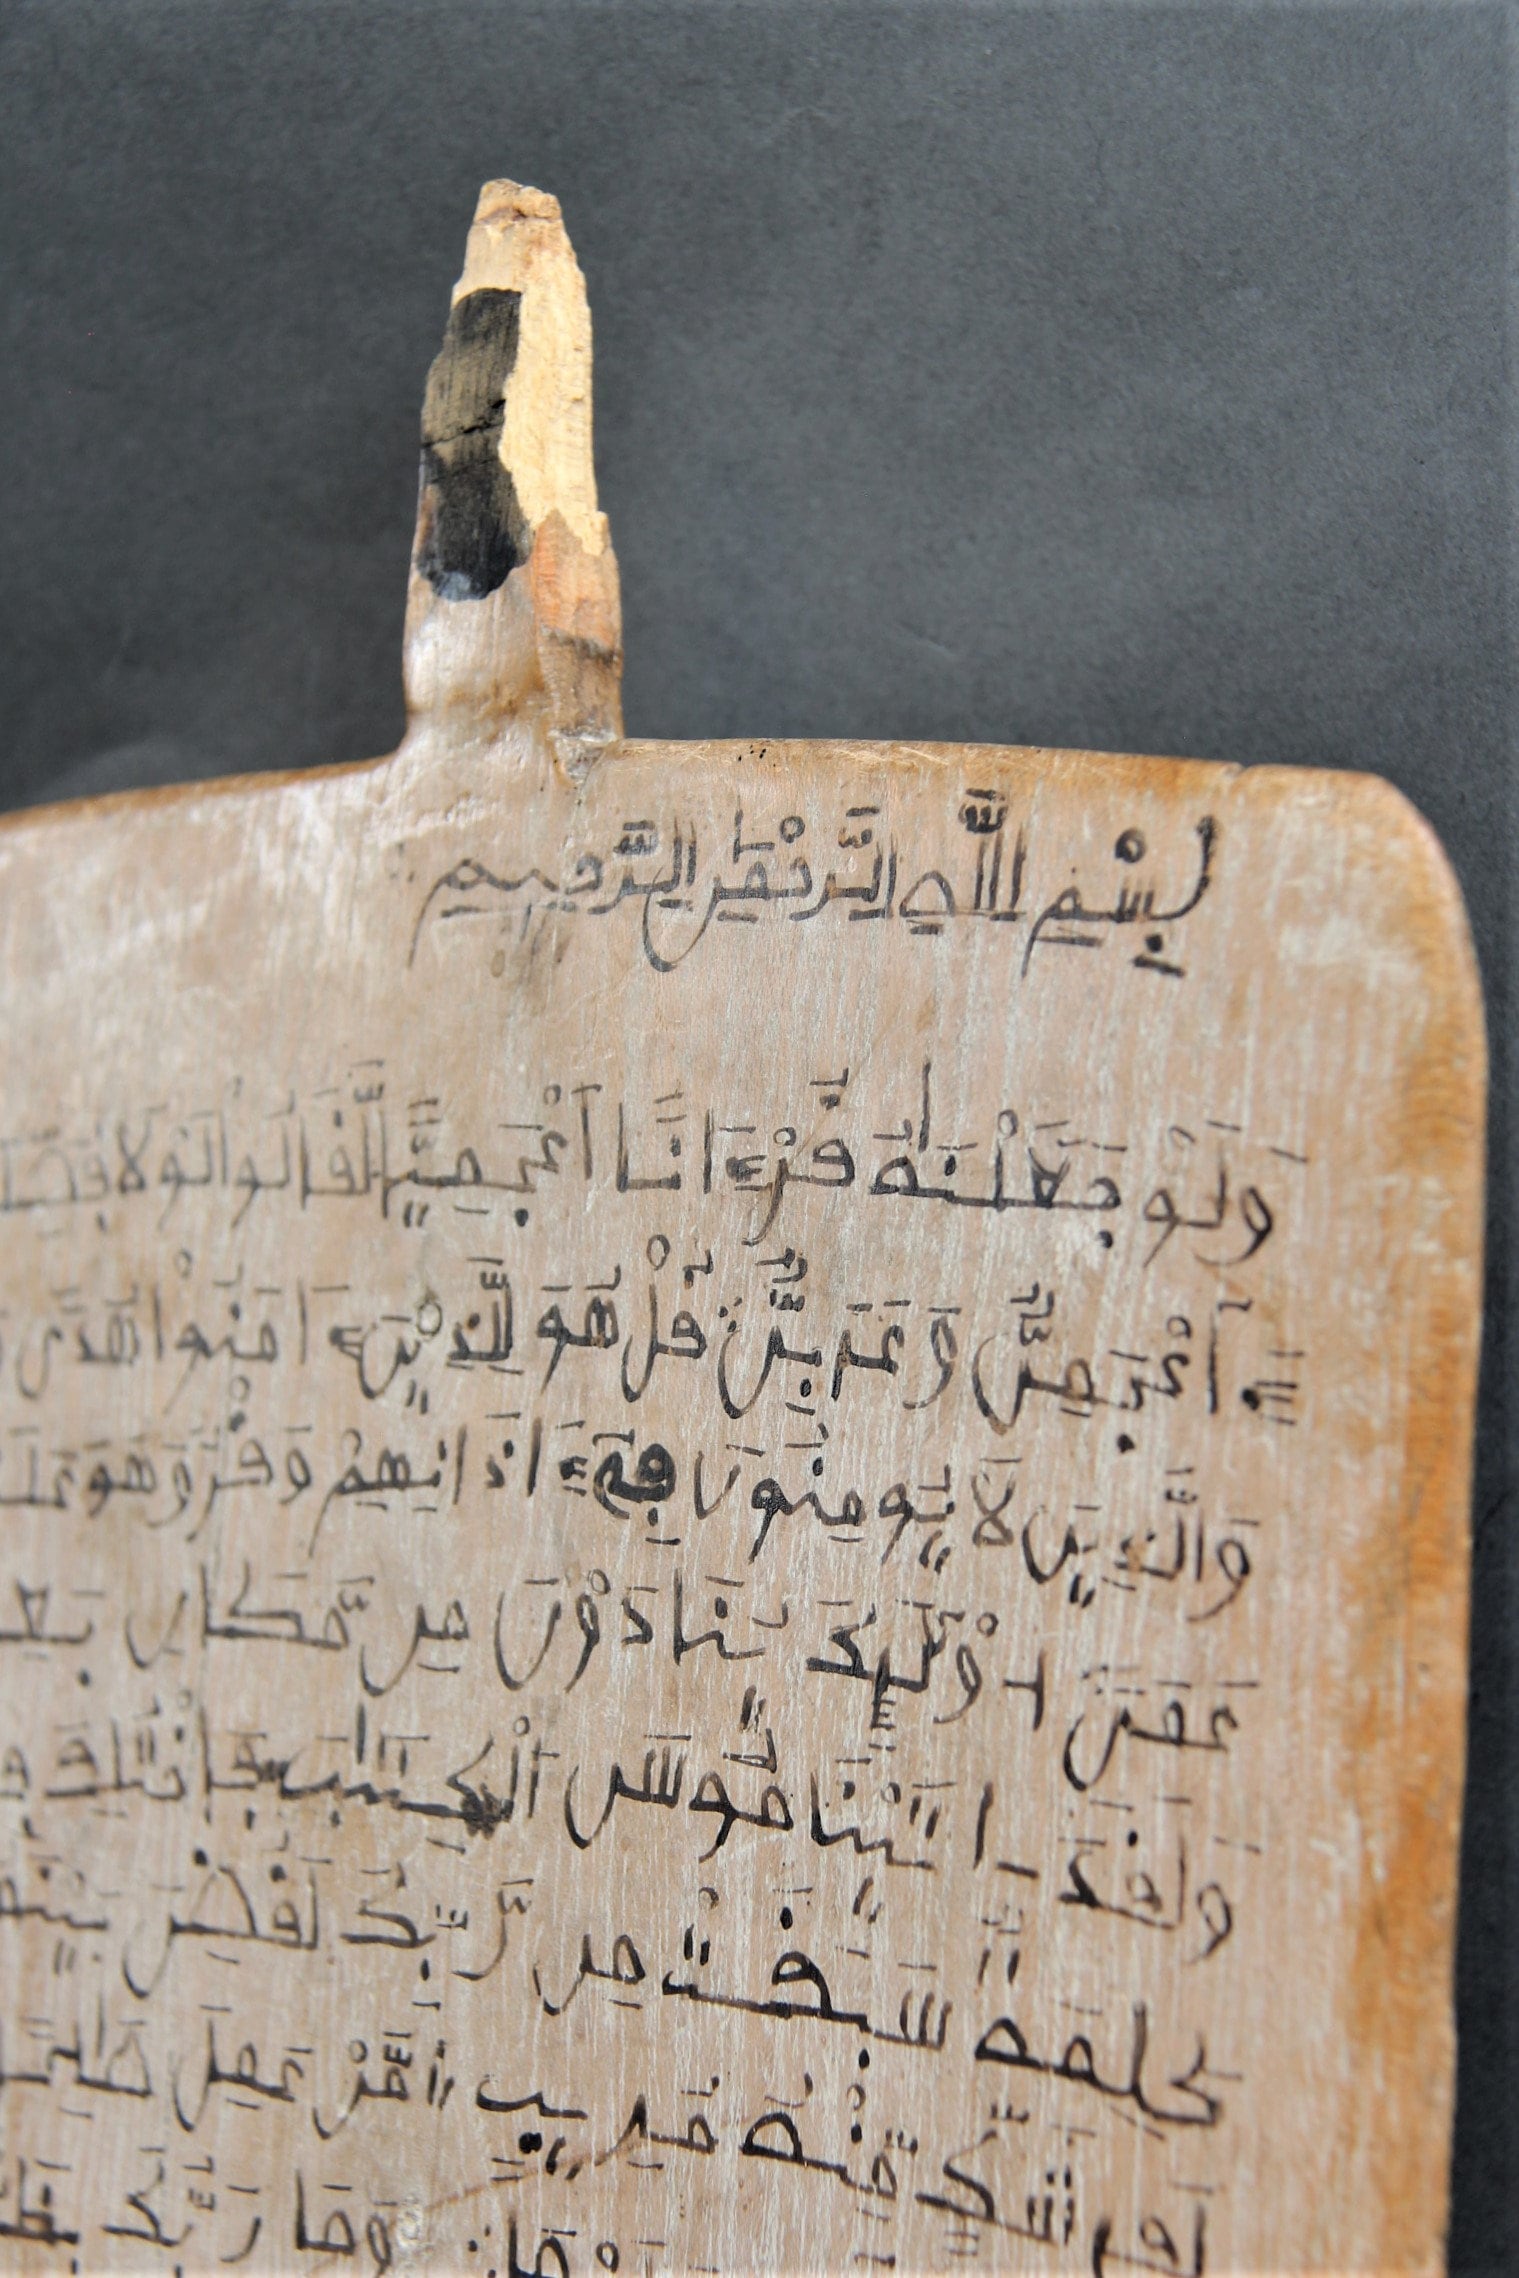 بِسْمِ اللَّهِ الرَّحْمَٰنِ الرَّحِيمِ
وَلَوْ جَعَلْنَٰهُ قُرْءَانًا اَعْجَمِيًّا لَّقَالُوا لَوْلَا فُصِّلَ
ءَآعْجَمِيٌّ وَعَرَبِيٌّ قُلْ هُوَ لِلَّذِينَ ءَامَنُوا هُدًى
وَالَّذِينَ لَا يُومِنُونَ فِي ءَاذَانِهِمْ وَقْرٌ وَهُوَ عَلَ
عَمًى اوْلَٰئِكَ يُنَادَوْنَ مِن مَّكَانٍ بَعِي
وَلَقَدَ اتَيْنَا مُوسَى الْكِتَٰبَ فَاخْتُلِفَ
كَلِمَةٌ سَبَقَتْ مِن رَّبِّكَ لَقُضِيَ بَيْنَ
شَكٍّ مِّنْهُ مُرِيبٍ مَّنْ عَمِلَ صَٰلِحًا
وَمَا رَبُّكَ